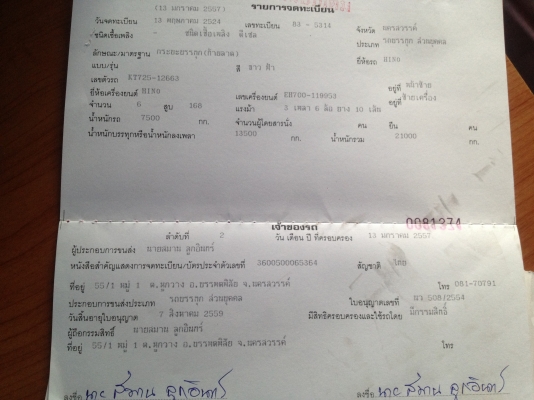 (13 มกราคม 2557)
รายการจดทะเบียน
วันจดทะเบียน 13 พฤษภาคม 2524 เลขทะเบียน 83 - 5314 จังหวัด นครสวรรค์
ชนิดเชื้อเพลิง - ชนิดเชื้อเพลิง ดีเซล ประเภท รถบรรทุก ส่วนบุคคล
ลักษณะ/มาตรฐาน กระบะบรรทุก(ท้ายลาด) ยี่ห้อรถ HINO
แบบ/รุ่น สี ขาว ฟ้า
เลขตัวรถ KT725-12663 อยู่ที่ หน้าซ้าย
ยี่ห้อเครื่องยนต์ HINO เลขเครื่องยนต์ EH700-119953 อยู่ที่ ซ้ายเครื่อง
จำนวน 6 สูบ 168 แรงม้า 3 เพลา 6 ล้อ ยาง 10 เส้น
น้ำหนักรถ 7500 กก. จำนวนผู้โดยสารนั่ง คน ยืน คน
น้ำหนักบรรทุกหรือน้ำหนักลงเพลา 13500 กก. น้ำหนักรวม 21000 กก.
0081374
เจ้าของรถ
ลำดับที่ 2 วัน เดือน ปี ที่ครอบครอง 13 มกราคม 2557
ผู้ประกอบการขนส่ง นายสมาน ลูกอินทร์
หนังสือสำคัญแสดงการจดทะเบียน/บัตรประจำตัวเลขที่ 3600500065364 สัญชาติ ไทย
ที่อยู่ 55/1 หมู่ 1 ต.หูกวาง อ.บรรพตพิสัย จ.นครสวรรค์ โทร 081-70791
ประกอบการขนส่งประเภท รถบรรทุก ส่วนบุคคล ใบอนุญาตเลขที่ นว 508/2554
วันสิ้นอายุใบอนุญาต 7 สิงหาคม 2559 มีสิทธิครอบครองและใช้รถโดย มีกรรมสิทธิ์
ผู้ถือกรรมสิทธิ์ นายสมาน ลูกอินทร์
ที่อยู่ 55/1 หมู่ 1 ต.หูกวาง อ.บรรพตพิสัย จ.นครสวรรค์ โทร
ลงชื่อ นาย สมาน ลูกอินทร์ ลงชื่อ นาย สมาน ลูกอินทร์